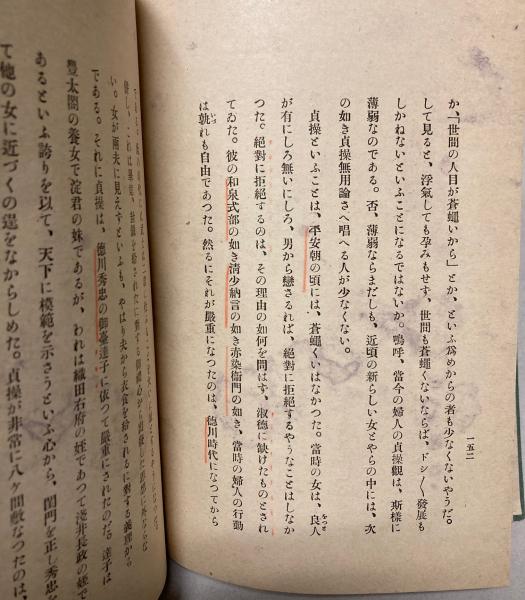 一五二
か、「世間の人目が蒼蠅いから」とか、といふ爲めからの者も少なくないやうだ。
して見ると、浮氣しても孕みもせず、世間も蒼蠅くないならば、ドシ〱發展も
しかねないといふことになるではないか。嗚呼、當今の婦人の貞操觀は、斯樣に
薄弱なのである。否、薄弱ならまだしも、近頃の新らしい女とやらの中には、次
の如き貞操無用論さへ唱へる人が少なくない。
貞操といふことは、平安朝の頃には、蒼蠅くいはなかつた。當時の女は、良人
が有にしろ無いにしろ、男から戀さるれば、絕對に拒絕するやうなことはしなか
つた。絕對に拒絕するのは、その理由の如何を問はず、淑德に缺けたものとされ
てゐた。彼の和泉式部の如き淸少納言の如き赤染衞門の如き、當時の婦人の行動
は孰れも自由であつた。然るにそれが嚴重になつたのは、德川時代になつてから
い。女が兩夫に見えずといふも、やはり夫から衣食を給されるに對する義理から
である。それに貞操は、德川秀忠の御臺達子に依つて嚴重にされたのだ。達子は
豐太閤の養女で淀君の妹であるが、われは織田右府の姪であつて淺井長政の姪で
あるといふ誇りを以て、天下に模範を示さうといふ心から、閨門を正し秀忠を
て他の女に近づくの遑をなからしめた。貞操が非常に八ヶ間敷なつたのは、